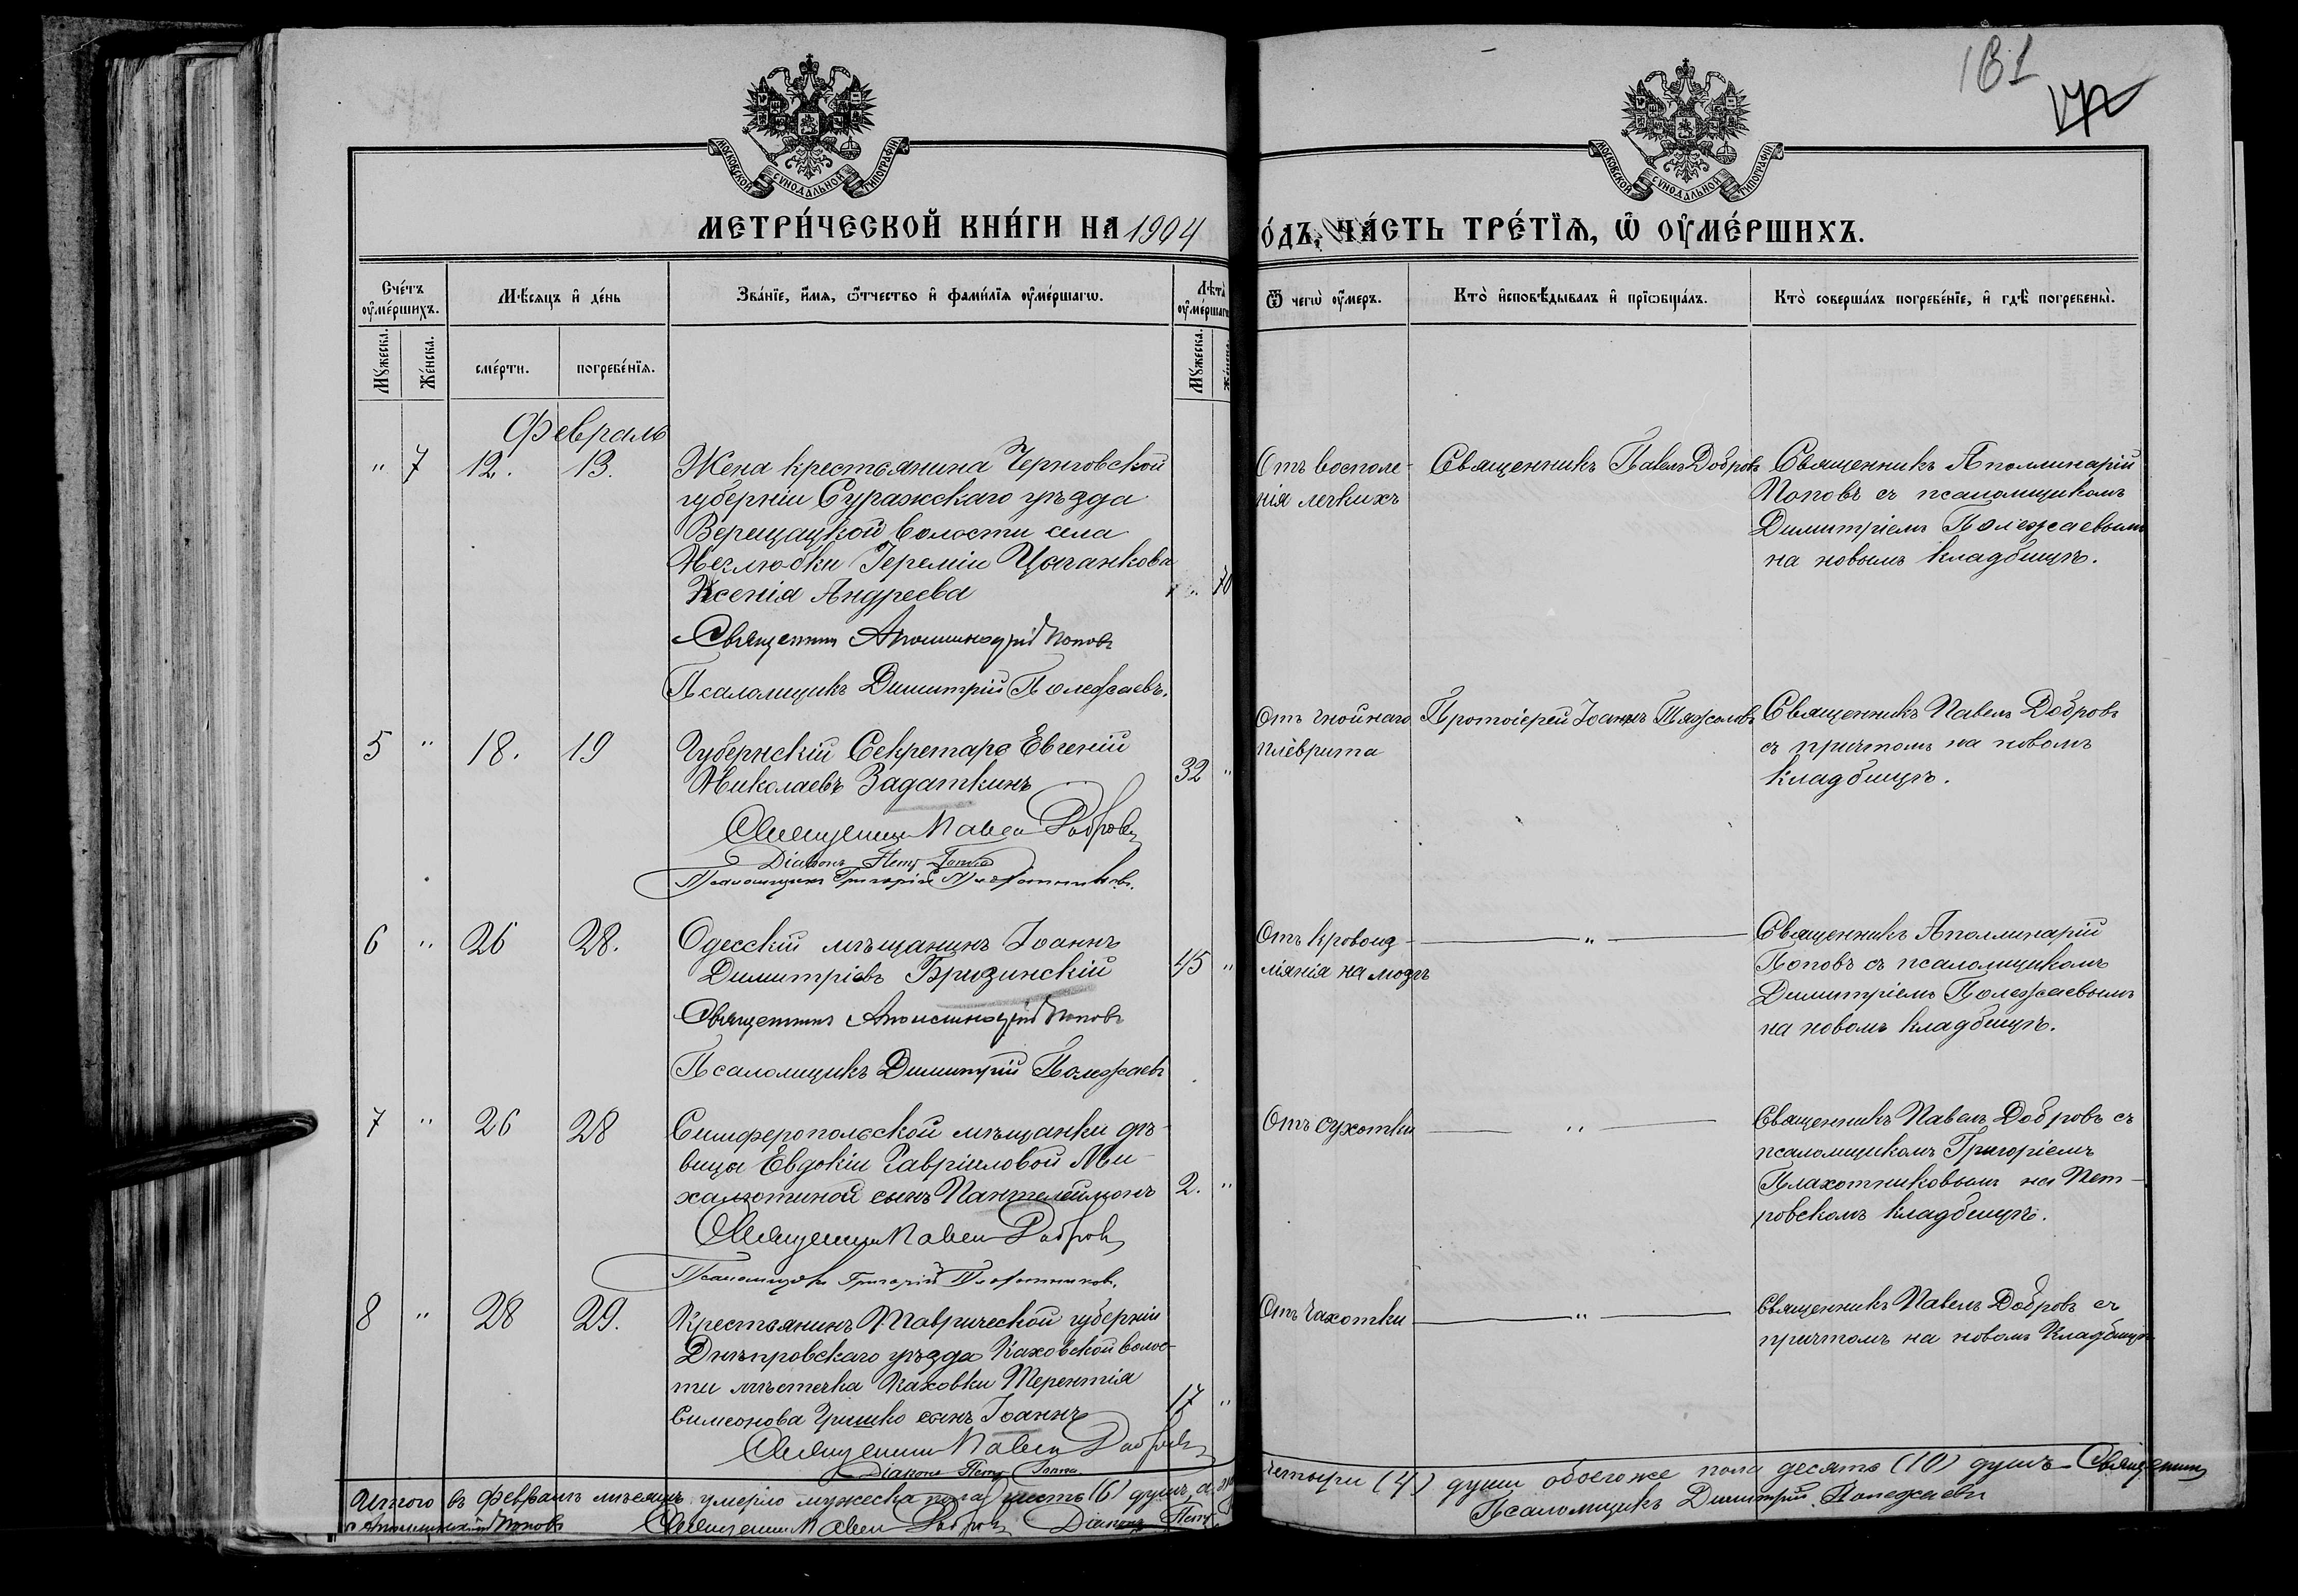 131
172
МОСКОВСКОЙ СѴНОДАЛЬНОЙ ТИПОГРАФІИ
МОСКОВСКОЙ СѴНОДАЛЬНОЙ ТИПОГРАФІИ
МЕТРИ́ЧЕСКОЙ КНИ́ГИ НА 1904
О́ДЪ, ЧА́СТЬ ТРЕ́ТЇѦ, Ѡ҆ ОУ҆МЕ́РШИХЪ.
Сче́тъ оу҆ме́ршихъ.
Мѣ́сяцъ и҆ де́нь
Зва́нїе, и҆́мѧ, ѻ҆́тчество и҆ фами́лїѧ оу҆ме́ршагѡ.
Лѣта̀ оу҆ме́ршагѡ
Ѿ чегѡ̀ оу҆́меръ.
Кто̀ и҆сповѣ́дывалъ и҆ прїѡбща́лъ.
Кто̀ соверша́лъ погребе́нїе, и҆ гдѣ̀ погребены̀.
Мꙋ́жеска.
Же́нска.
сме́рти.
погребе́нїѧ.
Мꙋ́жеска.
Февраль
" 7 12. 13.
Жена крестьянина Черниговской
губерніи Суражскаго уѣзда
Верещацкой волости села
Неглюбки Іереміи Цыганкова
Ксенія Андреева
70
Священникъ Аполлинарій Поповъ
Псаломщикъ Димитрій Полежаевъ.
Отъ воспале-
нія легкихъ
Священникъ Павелъ Добровъ
Священникъ Аполлинарій
Поповъ съ псаломщикомъ
Димитріемъ Полежаевымъ
на новомъ кладбищѣ.
5 " 18. 19
Губернскій Секретарь Евгеній
Николаевъ Задаткинъ
32 "
Священникъ Павелъ Добровъ
Діаконъ Петръ
Псаломщикъ Григорій Плахотниковъ.
Отъ гнойнаго
плеврита
Протоіерей Іоаннъ Тяжеловъ
Священникъ Павелъ Добровъ
съ причтомъ на новомъ
кладбищѣ.
6 " 26 28.
Одесскій мѣщанинъ Іоаннъ
Димитріевъ Бризинскій
45 "
Священникъ Аполлинарій Поповъ
Псаломщикъ Димитрій Полежаевъ
Отъ кровоиз-
ліянія на мозгъ
"
Священникъ Аполлинарій
Поповъ съ псаломщикомъ
Димитріемъ Полежаевымъ
на новомъ кладбищѣ.
7 " 26 28
Симферопольской мѣщанки дѣ-
вицы Евдокіи Гавріиловой Ми-
халютиной сынъ Пантелеймонъ
2. "
Священникъ Павелъ Добровъ
Псаломщикъ Григорій Плахотниковъ.
Отъ сухотки
"
Священникъ Павелъ Добровъ съ
псаломщикомъ Григоріемъ
Плахотниковымъ на Пет-
ровскомъ кладбищѣ.
8 " 28 29.
Крестьянинъ Таврической губерніи
Днѣпровскаго уѣзда Каховской волос-
ти мѣстечка Каховки Терентія
Симеонова Гришко сынъ Іоаннъ
17 "
Священникъ Павелъ Добровъ
Діаконъ Петръ
Отъ чахотки
"
Священникъ Павелъ Добровъ съ
причтомъ на новомъ кладбищѣ
Итого въ Февралѣ мѣсяцѣ умерло мужеска пола шесть (6) душъ, а
четыри (4) души обоего же пола десять (10) душъ Священникъ
Аполлинарій Поповъ Священникъ Павелъ Добровъ Діаконъ Петръ
Псаломщикъ Димитрій Полежаевъ